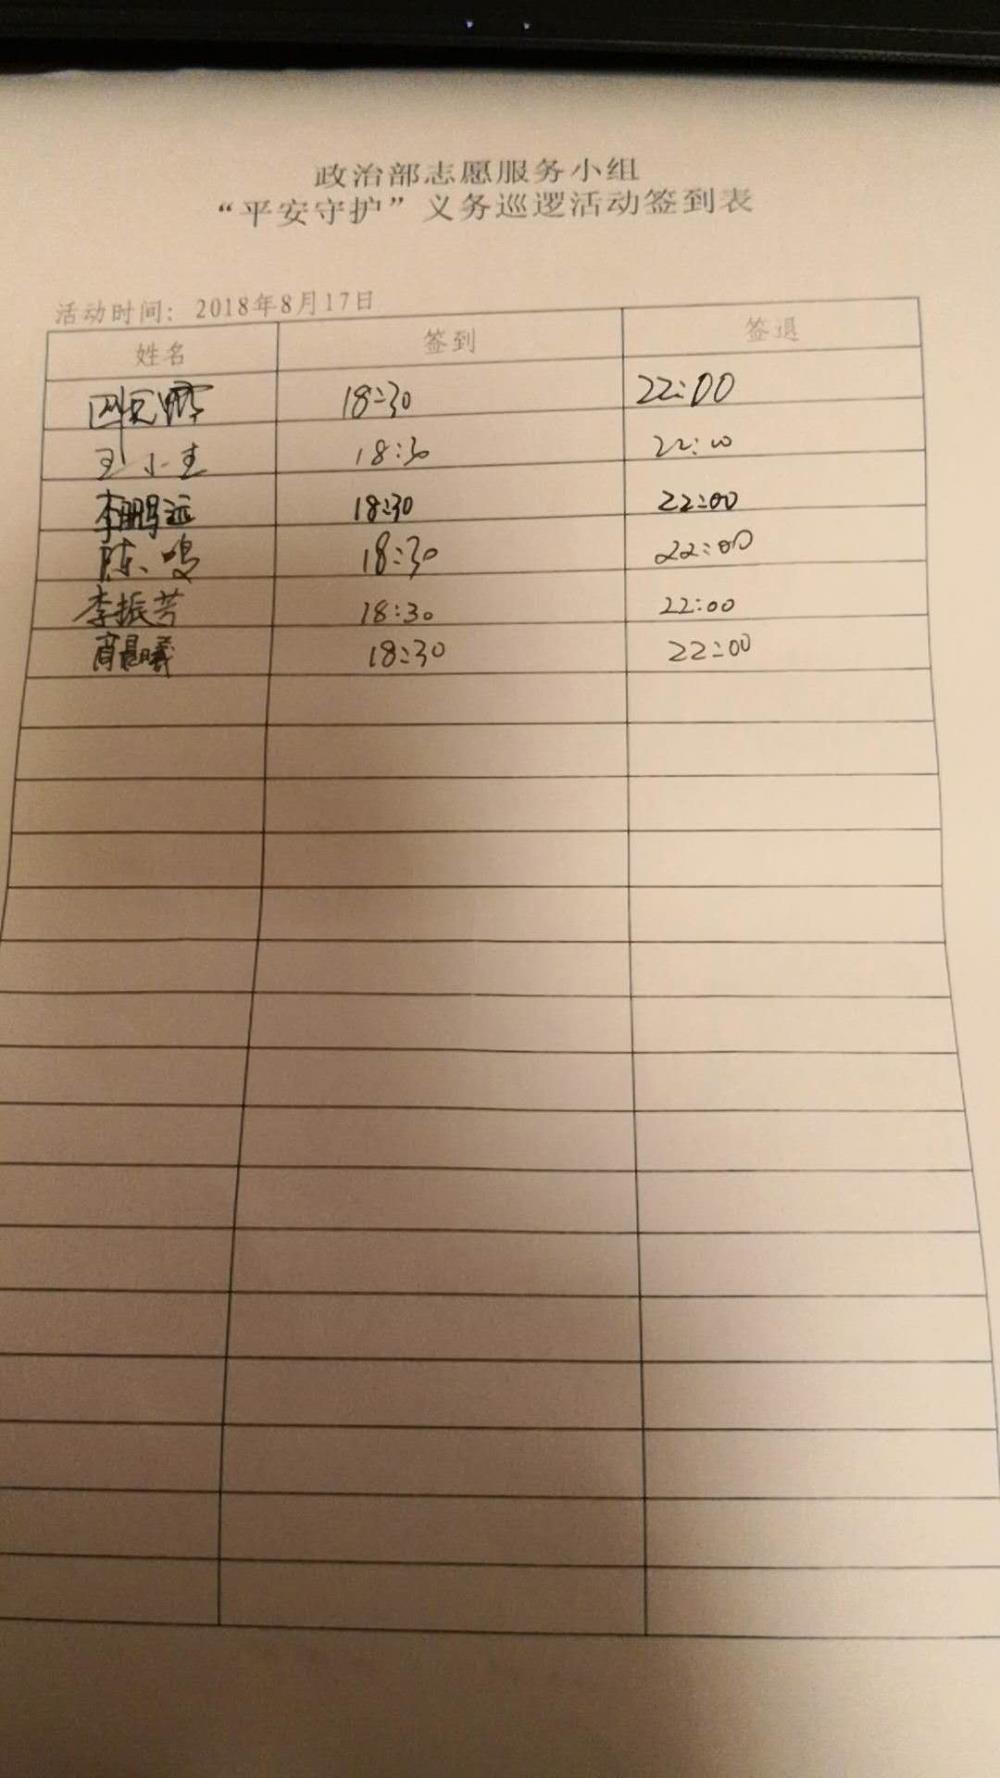 政治部志愿服务小组
“平安守护”义务巡逻活动签到表
活动时间：2018年8月17日
姓名 签到 签退
18:30 22:00
王小 18:30 22:00
李鹏远 18:30 22:00
陈鸣 18:30 22:00
李振芳 18:30 22:00
晨曦 18:30 22:00